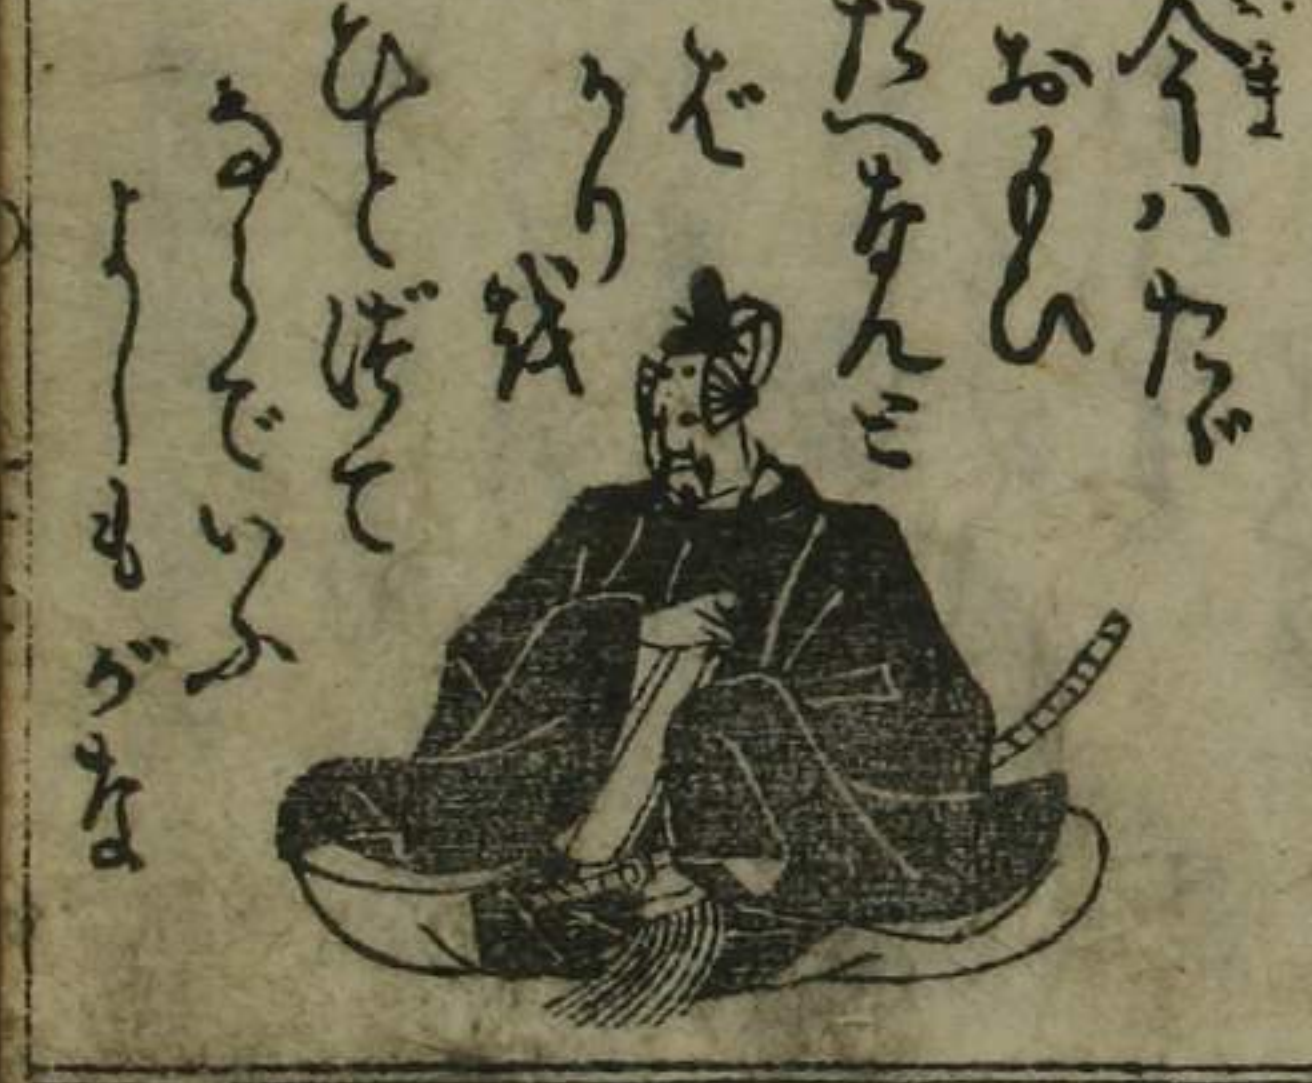 今ハたゞ
おもひ
たへなんと
ば
かり
越
ひとづて
ならでいふ
よしもがな